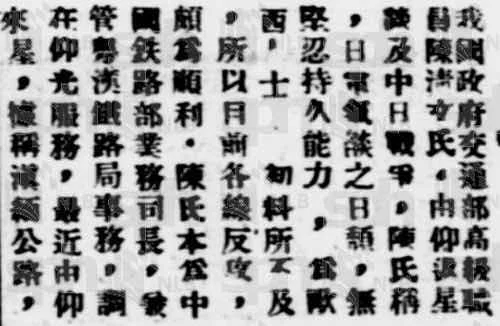 我國政府交通部高級職
員陳清文氏，由仰返星
談及中日戰爭，陳氏稱
，日軍雖談之日頹，無
堅忍持久能力，為歐
西人士初料所不及
，所以目前各線反攻，
頗為順利。陳氏本為中
國鐵路部業務司長，兼
管粵漢鐵路局事務，調
在仰光服務，最近由仰
來星，據稱滇緬公路，